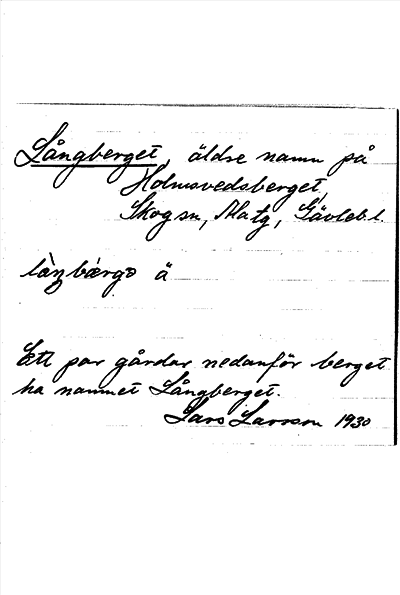 Långberget, äldre namn på
Holmsvedsberget,
Skog sn, Ala tg, Gävleb. l.
làŋbærgə ä
Ett par gårdar nedanför berget
ha namnet Långberget.
Lars Larsson 1930